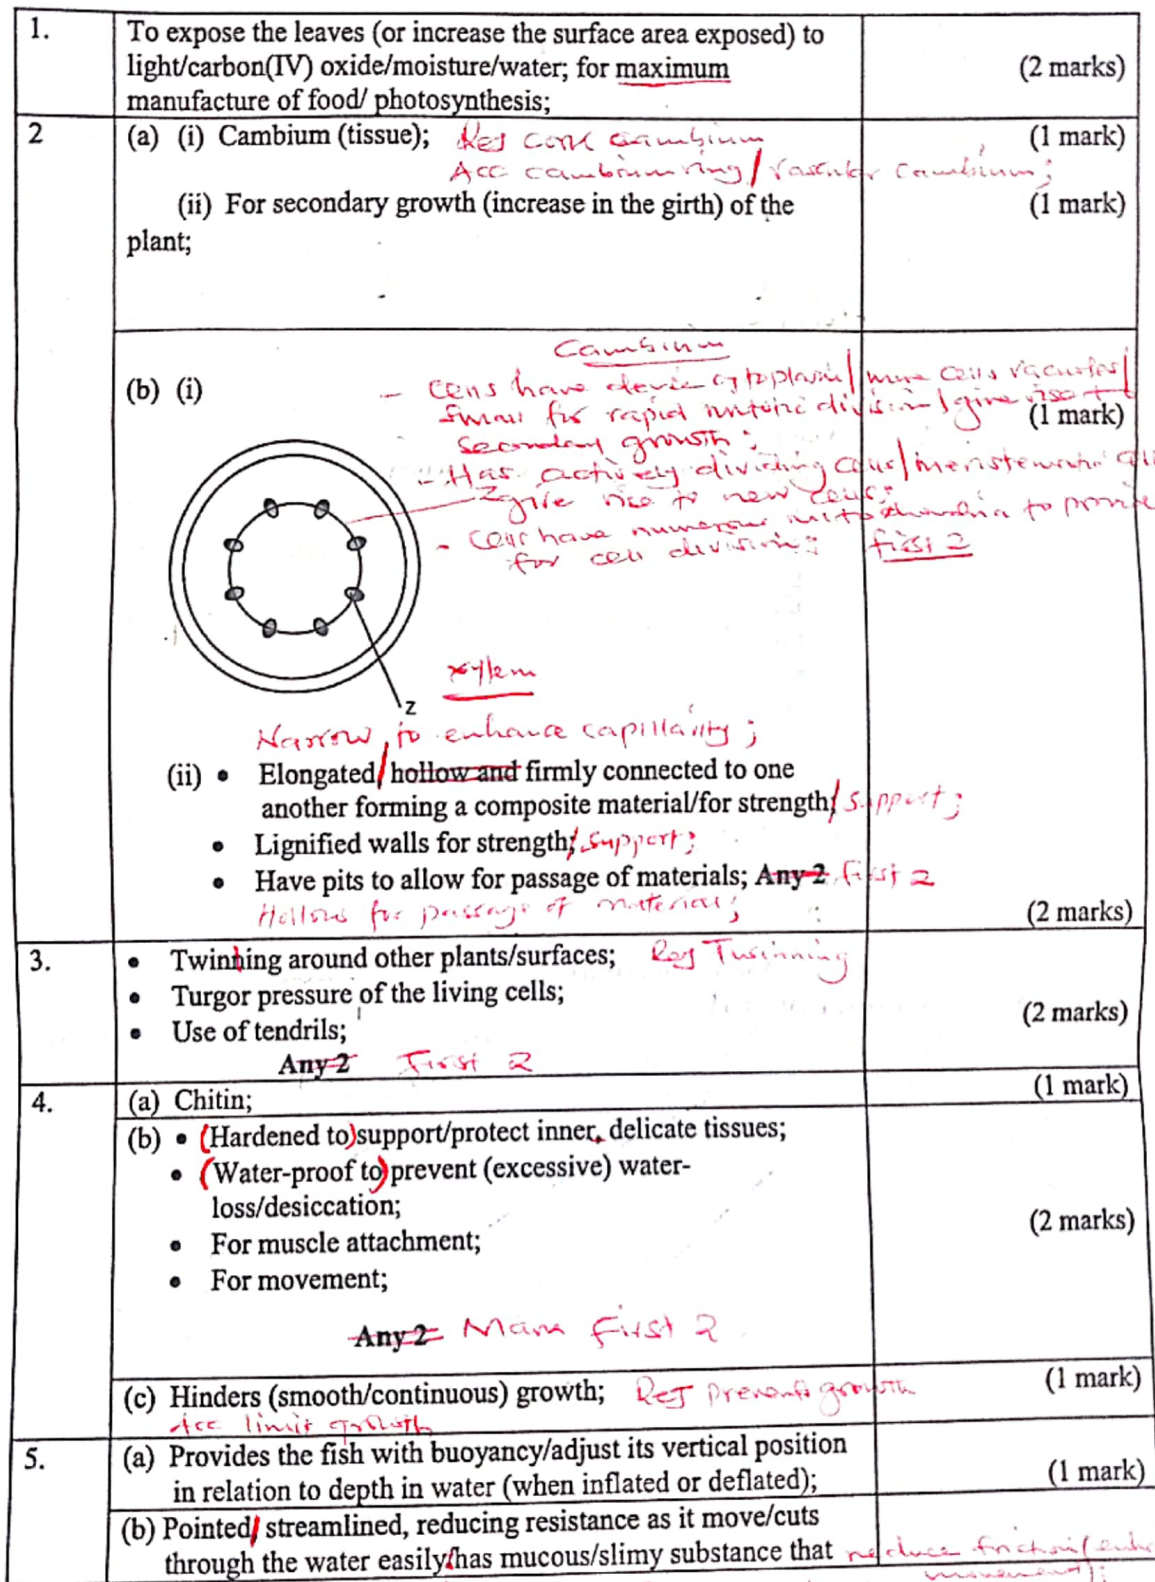 1.
To expose the leaves (or increase the surface area exposed) to
light/carbon(IV) oxide/moisture/water; for maximum
manufacture of food/ photosynthesis;
(2 marks)
2
(a) (i) Cambium (tissue); Rej cork cambium
(1 mark)
Acc cambium ring / vascular cambium;
(ii) For secondary growth (increase in the girth) of the
plant;
(1 mark)
Cambium
(b) (i)
- Cells have dense cytoplasm / vacuoles /
small for rapid mitotic division / give rise to
(1 mark)
secondary growth;
- Has actively dividing cells / meristematic
give rise to new cells;
- Cells have numerous mitochondria to provide
for cell division; first 2
Z
Z
xylem
Narrow, to enhance capillarity;
(ii) • Elongated/ hollow and firmly connected to one
another forming a composite material/for strength/ support;
• Lignified walls for strength;/ support;
• Have pits to allow for passage of materials; Any 2 first 2
Hollow for passage of materials;
(2 marks)
3.
• Twinning around other plants/surfaces; Rej Twinning
• Turgor pressure of the living cells;
• Use of tendrils;
(2 marks)
Any 2 First 2
4.
(a) Chitin;
(1 mark)
(b) • (Hardened to) support/protect inner, delicate tissues;
• (Water-proof to) prevent (excessive) water-
loss/desiccation;
• For muscle attachment;
(2 marks)
• For movement;
Any 2 Mark First 2
(c) Hinders (smooth/continuous) growth; Rej prevents growth
(1 mark)
Acc limit growth
5.
(a) Provides the fish with buoyancy/adjust its vertical position
in relation to depth in water (when inflated or deflated);
(1 mark)
(b) Pointed/ streamlined, reducing resistance as it move/cuts
through the water easily/has mucous/slimy substance that reduce friction/
movement);